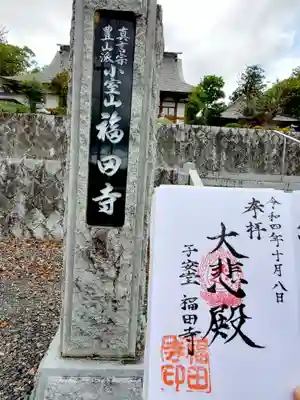 真言宗
豊山派
小室山福田寺
奉拝
令和四年十月八日
大悲殿
子安堂 福田寺
福田
寺印